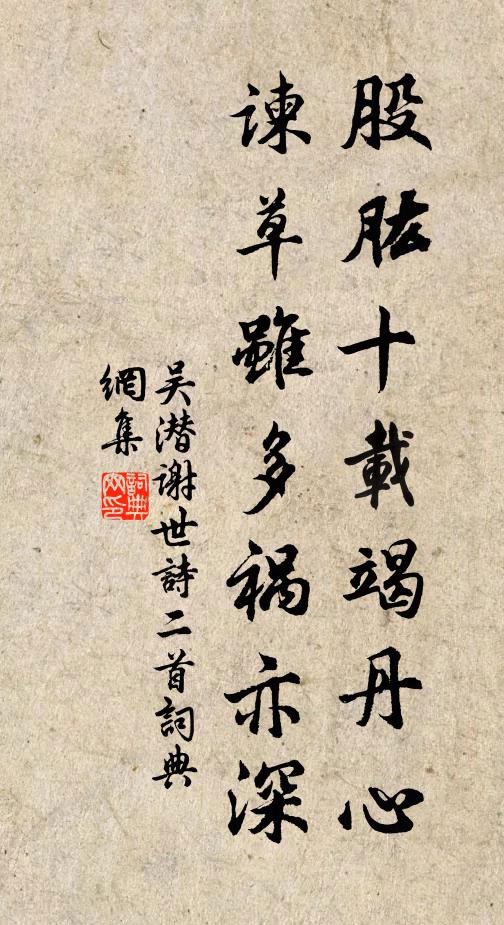 股肱十載竭丹心
諫草雖多禍亦深
吴潜謝世詩二首詞典
網集
詞典
网印